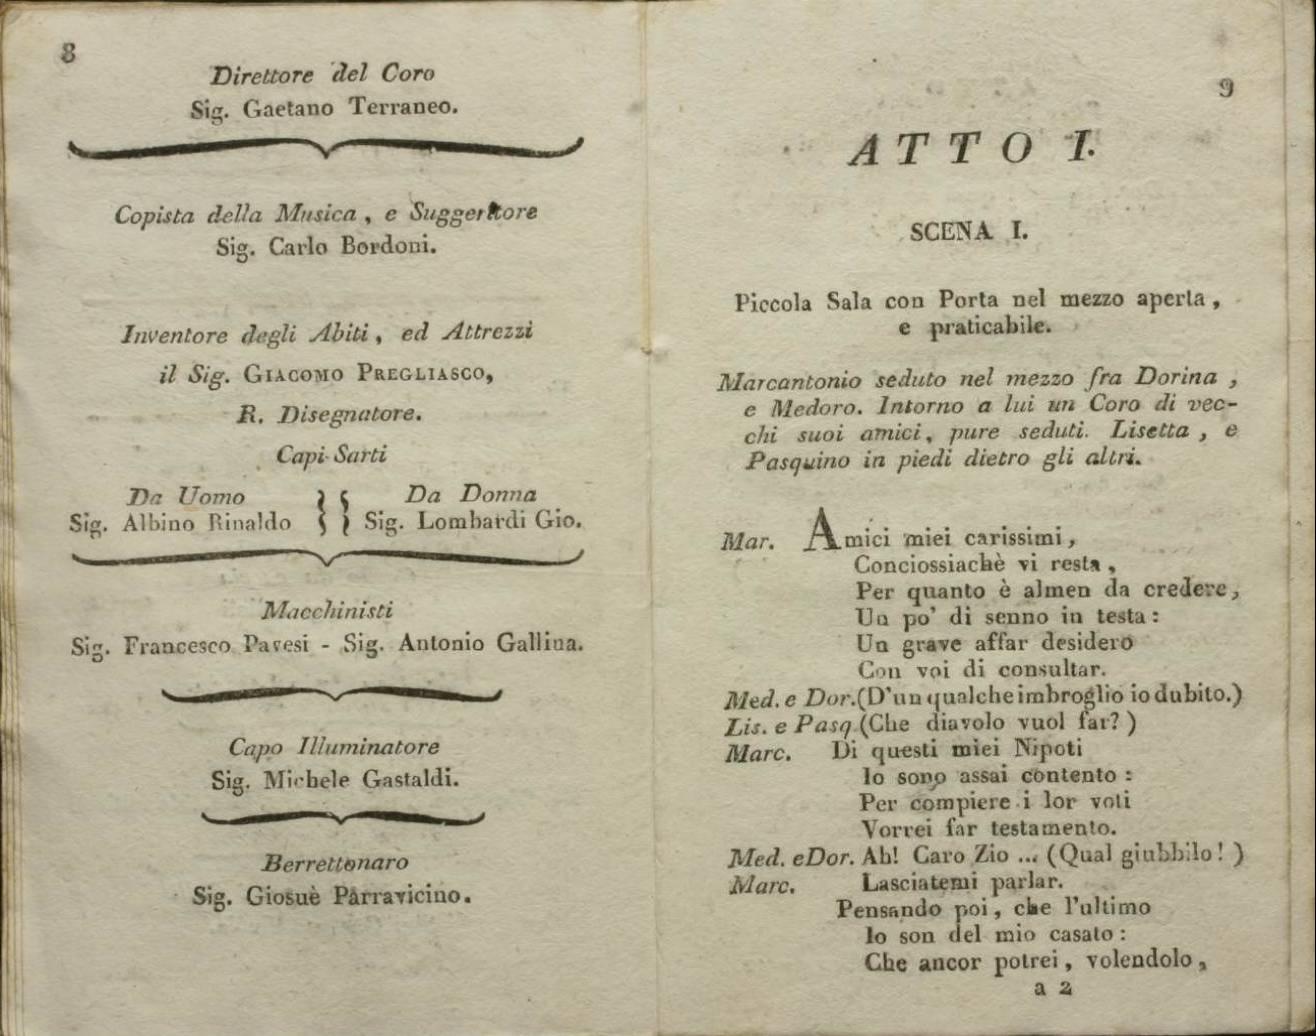 8
Direttore del Coro
Sig. Gaetano Terraneo.
Copista della Musica , e Suggeritore
Sig. Carlo Bordoni.
Inventore degli Abiti , ed Attrezzi
il Sig. GIACOMO PREGLIASCO,
R. Disegnatore.
Capi Sarti
Da Uomo Da Donna
Sig. Albino Rinaldo Sig. Lombardi Gio.
Macchinisti
Sig. Francesco Pavesi - Sig. Antonio Gallina.
Capo Illuminatore
Sig. Michele Gastaldi.
Berrettonaro
Sig. Giosuè Parravicino.
9
ATTO I.
SCENA I.
Piccola Sala con Porta nel mezzo aperta ,
e praticabile.
Marcantonio seduto nel mezzo fra Dorina ,
e Medoro. Intorno a lui un Coro di vec-
chi suoi amici, pure seduti. Lisetta , e
Pasquino in piedi dietro gli altri.
Mar. Amici miei carissimi ,
Conciossiachè vi resta ,
Per quanto è almen da credere ,
Un po' di senno in testa :
Un grave affar desidero
Con voi di consultar.
Med. e Dor. (D'un qualche imbroglio io dubito.)
Lis. e Pasq. (Che diavolo vuol far? )
Marc. Di questi miei Nipoti
Io sono assai contento :
Per compiere i lor voti
Vorrei far testamento.
Med. e Dor. Ah! Caro Zio ... (Qual giubbilo! )
Marc. Lasciatemi parlar.
Pensando poi , che l'ultimo
Io son del mio casato :
Che ancor potrei , volendolo ,
a 2